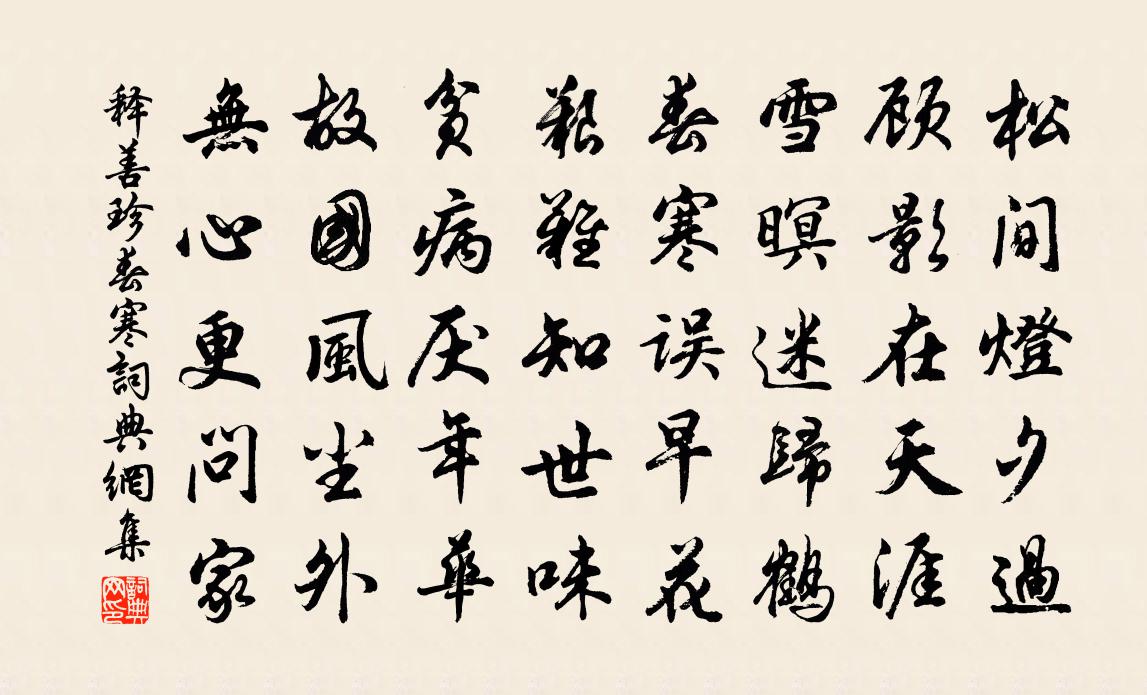 松间燈夕過
顾影在天涯
雪暝迷歸鹤
春寒误早花
艰難知世味
贫病厌年華
故國風尘外
無心更问家
释善珍春寒詞典網集
詞典网印